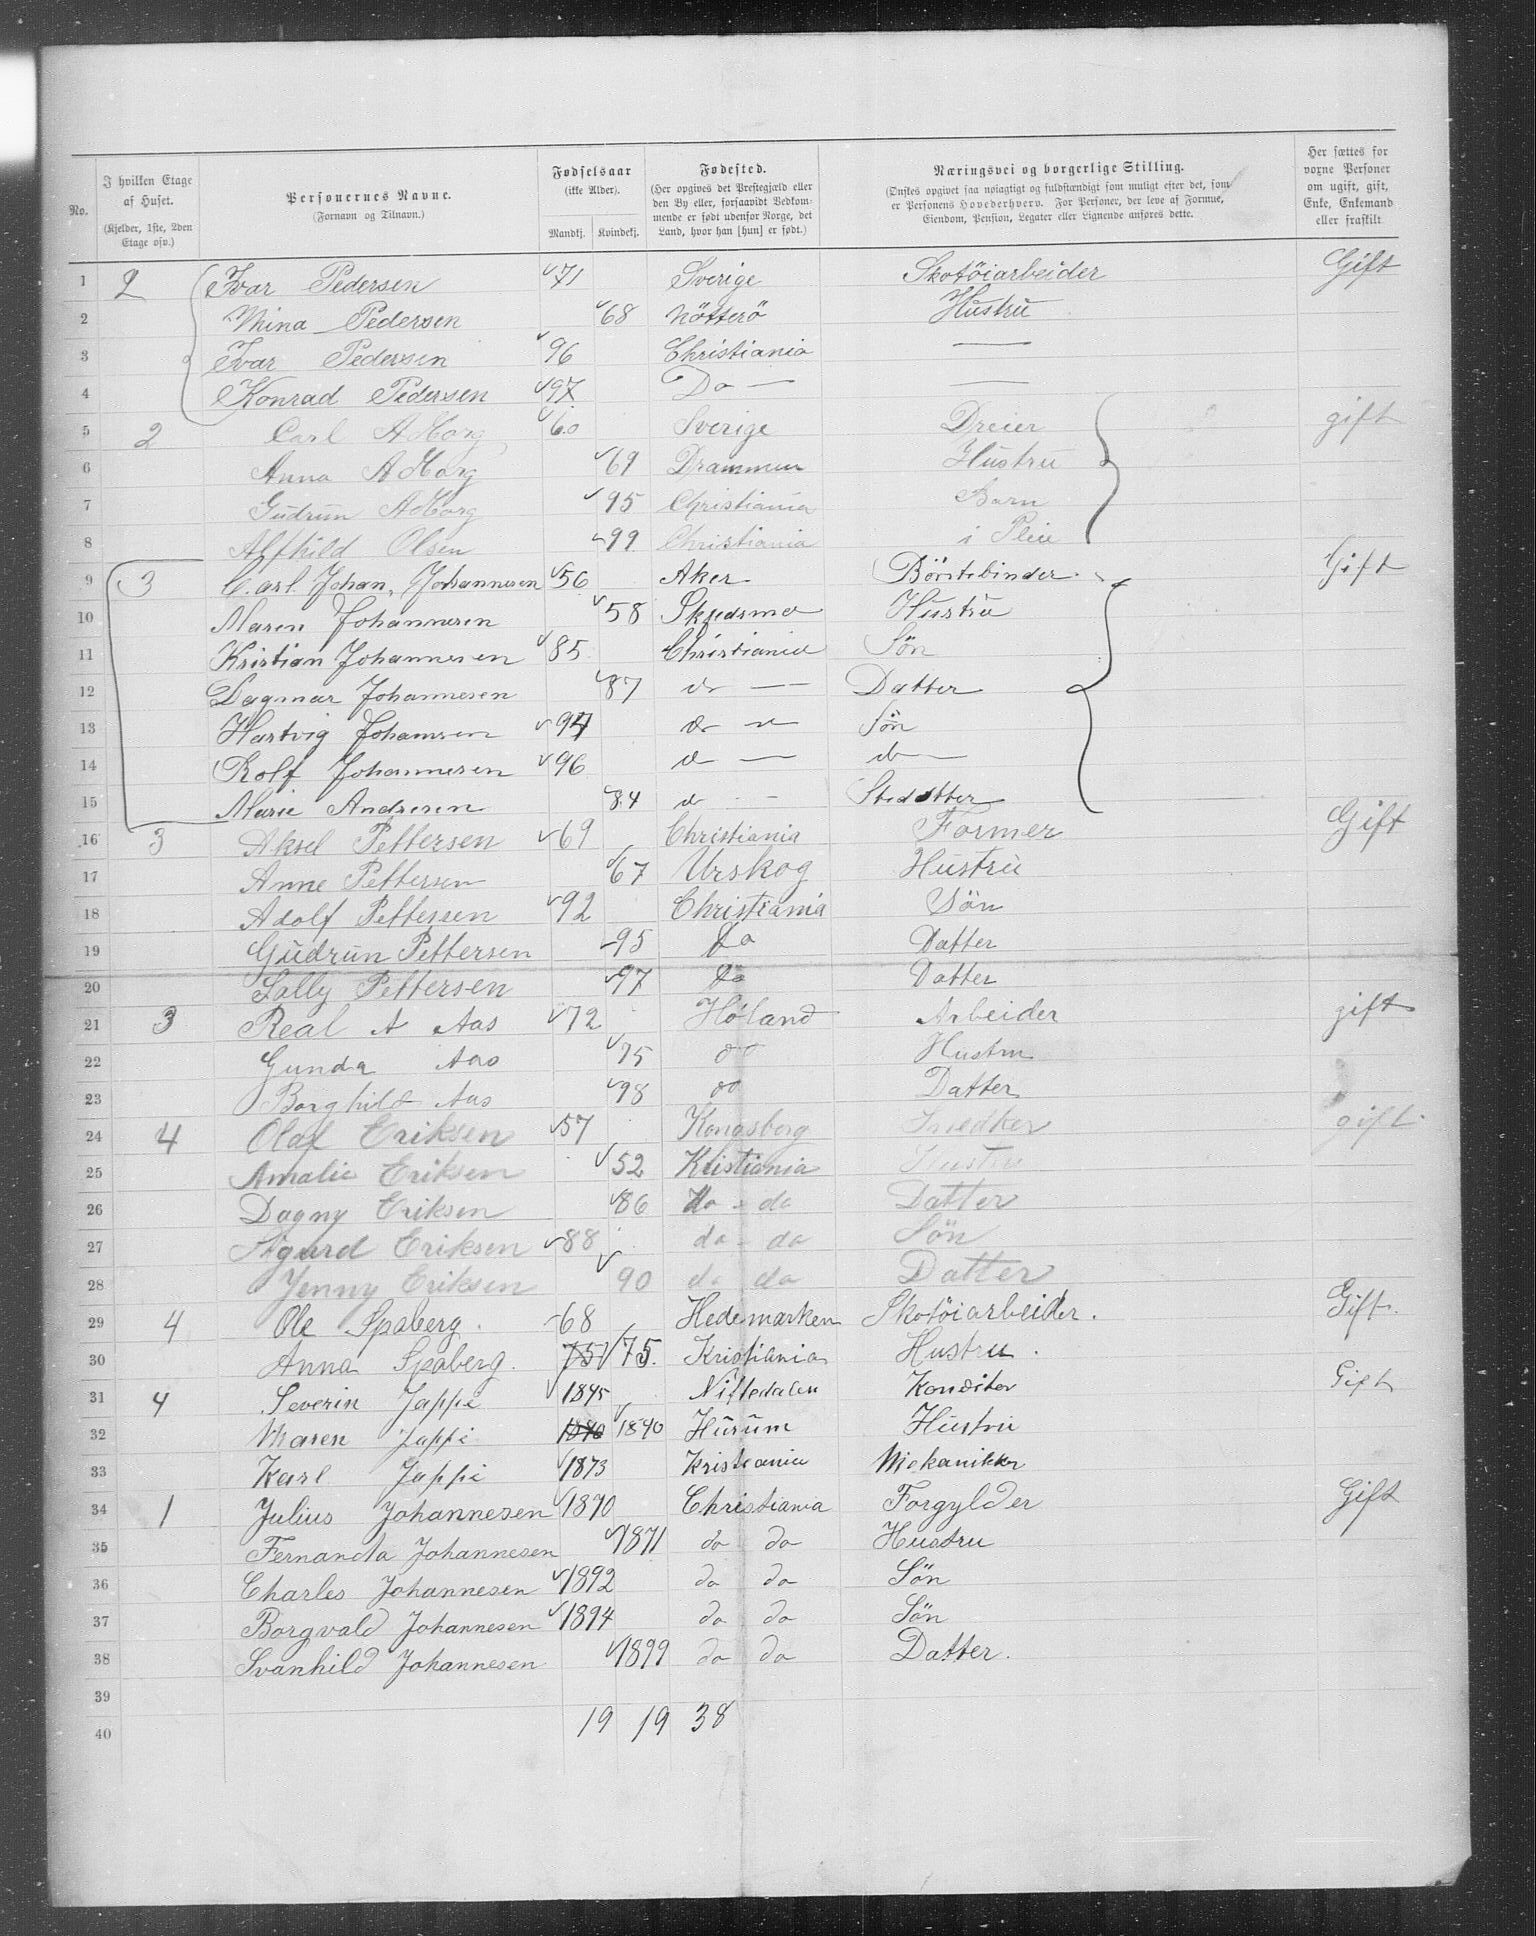 No.
I hvilken Etage af Huset.
(Kjelder, 1ste, 2den Etage osv.)
Personernes Navne.
(Fornavn og Tilnavn.)
Fødselsaar
(ikke Alder).
Mandkj. Kvindekj.
Fødested.
(Her opgives det Prestegjæld eller den By eller, forsaavidt Vedkommende er født udenfor Norge, det Land, hvor han [hun] er født.)
Næringsvei og borgerlige Stilling.
(Ønskes opgivet saa nøiagtigt og fuldstændigt som muligt efter det, som er Personens Hovederhverv. For Personer, der leve af Formue, Eiendom, Pension, Legater eller Lignende anføres dette.
Her sættes for voxne Personer om ugift, gift, Enke, Enkemand eller fraskilt
1 2 Ivar Pedersen 71 Sverige Skotöiarbeider Gift
2 Mina Pedersen 68 Nötterö Hustru
3 Ivar Pedersen 96 Christiania —
4 Konrad Pedersen 97 Do — —
5 2 Carl A Borg 60 Sverige Dreier gift
6 Anna A Borg 69 Drammen Hustru
7 Gudrun A Borg 95 Christiania Barn
8 Alfhild Olsen 99 Christiania i Pleie
9 3 Carl Johan Johannesen 56 Aker Börstebinder Gift
10 Maren Johannesen 58 Skjedsmo Hustru
11 Kristian Johannesen 85 Christiania Sön
12 Dagmar Johannesen 87 do — Datter
13 Hartvig Johannsen 94 do — Sön
14 Rolf Johannesen 96 do — do —
15 Marie Andresen 84 do — Steddatter
16 3 Aksel Pettersen 69 Christiania Former Gift
17 Anne Pettersen 67 Urskog Hustru
18 Adolf Pettersen 92 Christiania Sön
19 Gudrun Pettersen 95 Do Datter
20 Sally Pettersen 97 Do Datter
21 3 Real A Aas 72 Höland Arbeider gift
22 Gunda Aas 75 do Hustru
23 Borghild Aas 98 do Datter
24 4 Olaf Eriksen 57 Kongsberg Snedker gift
25 Amalie Eriksen 52 Kristiania Hustru
26 Dagny Eriksen 86 do - do Datter
27 Sigurd Eriksen 88 do - do Sön
28 Jenny Eriksen 90 do do Datter
29 4 Ole Spaberg. 68 Hedemarken Skotöiarbeider. Gift.
30 Anna Spaberg. 75 75. Kristiania Hustru.
31 4 Severin Jappe 1845 Nittedalen Konditor Gift
32 Maren Jappe 1840 1840 Hurum Hustru
33 Karl Jappe 1873 Kristiania Mekaniker
34 1 Julius Johannesen 1870 Christiania Forgylder Gift
35 Fernanda Johannesen 1871 do do Hustru
36 Charles Johannesen 1892 do do Sön
37 Borgvald Johannesen 1894 do do Sön
38 Svanhild Johannesen 1899 do do Datter.
39
40 19 19 38